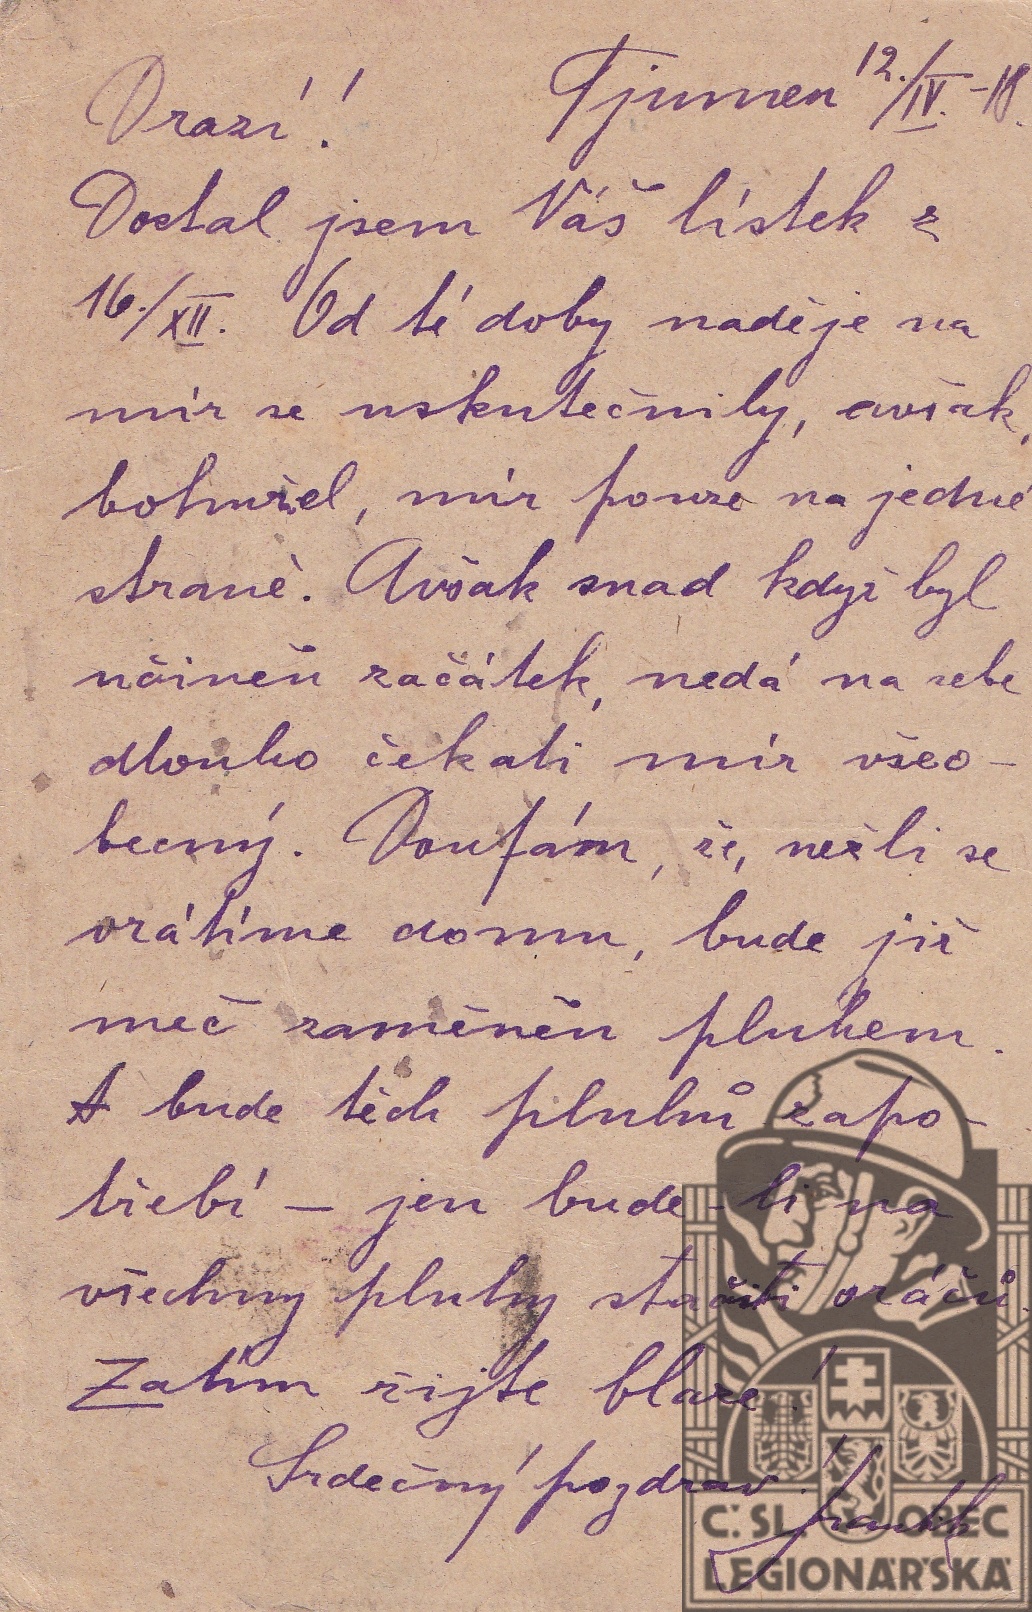 Drazí! Tjumen 12./IV.-18.
Dostal jsem Váš lístek z
16./XII. Od té doby naděje na
mír se uskutečnily, avšak,
bohužel, mír pouze na jedné
straně. Avšak snad když byl
učiněn začátek, nedá na sebe
dlouho čekati mír všeo-
becný. Doufám, že, nežli se
vrátíme domu, bude již
meč zaměněn pluhem.
A bude těch pluhů zapo-
třebí – jen bude-li na
všechny pluhy stačiti oráčů.
Zatím žijte blaze!
Srdečný pozdrav!
Č. SL. OBEC
LEGIONÁŘSKÁ